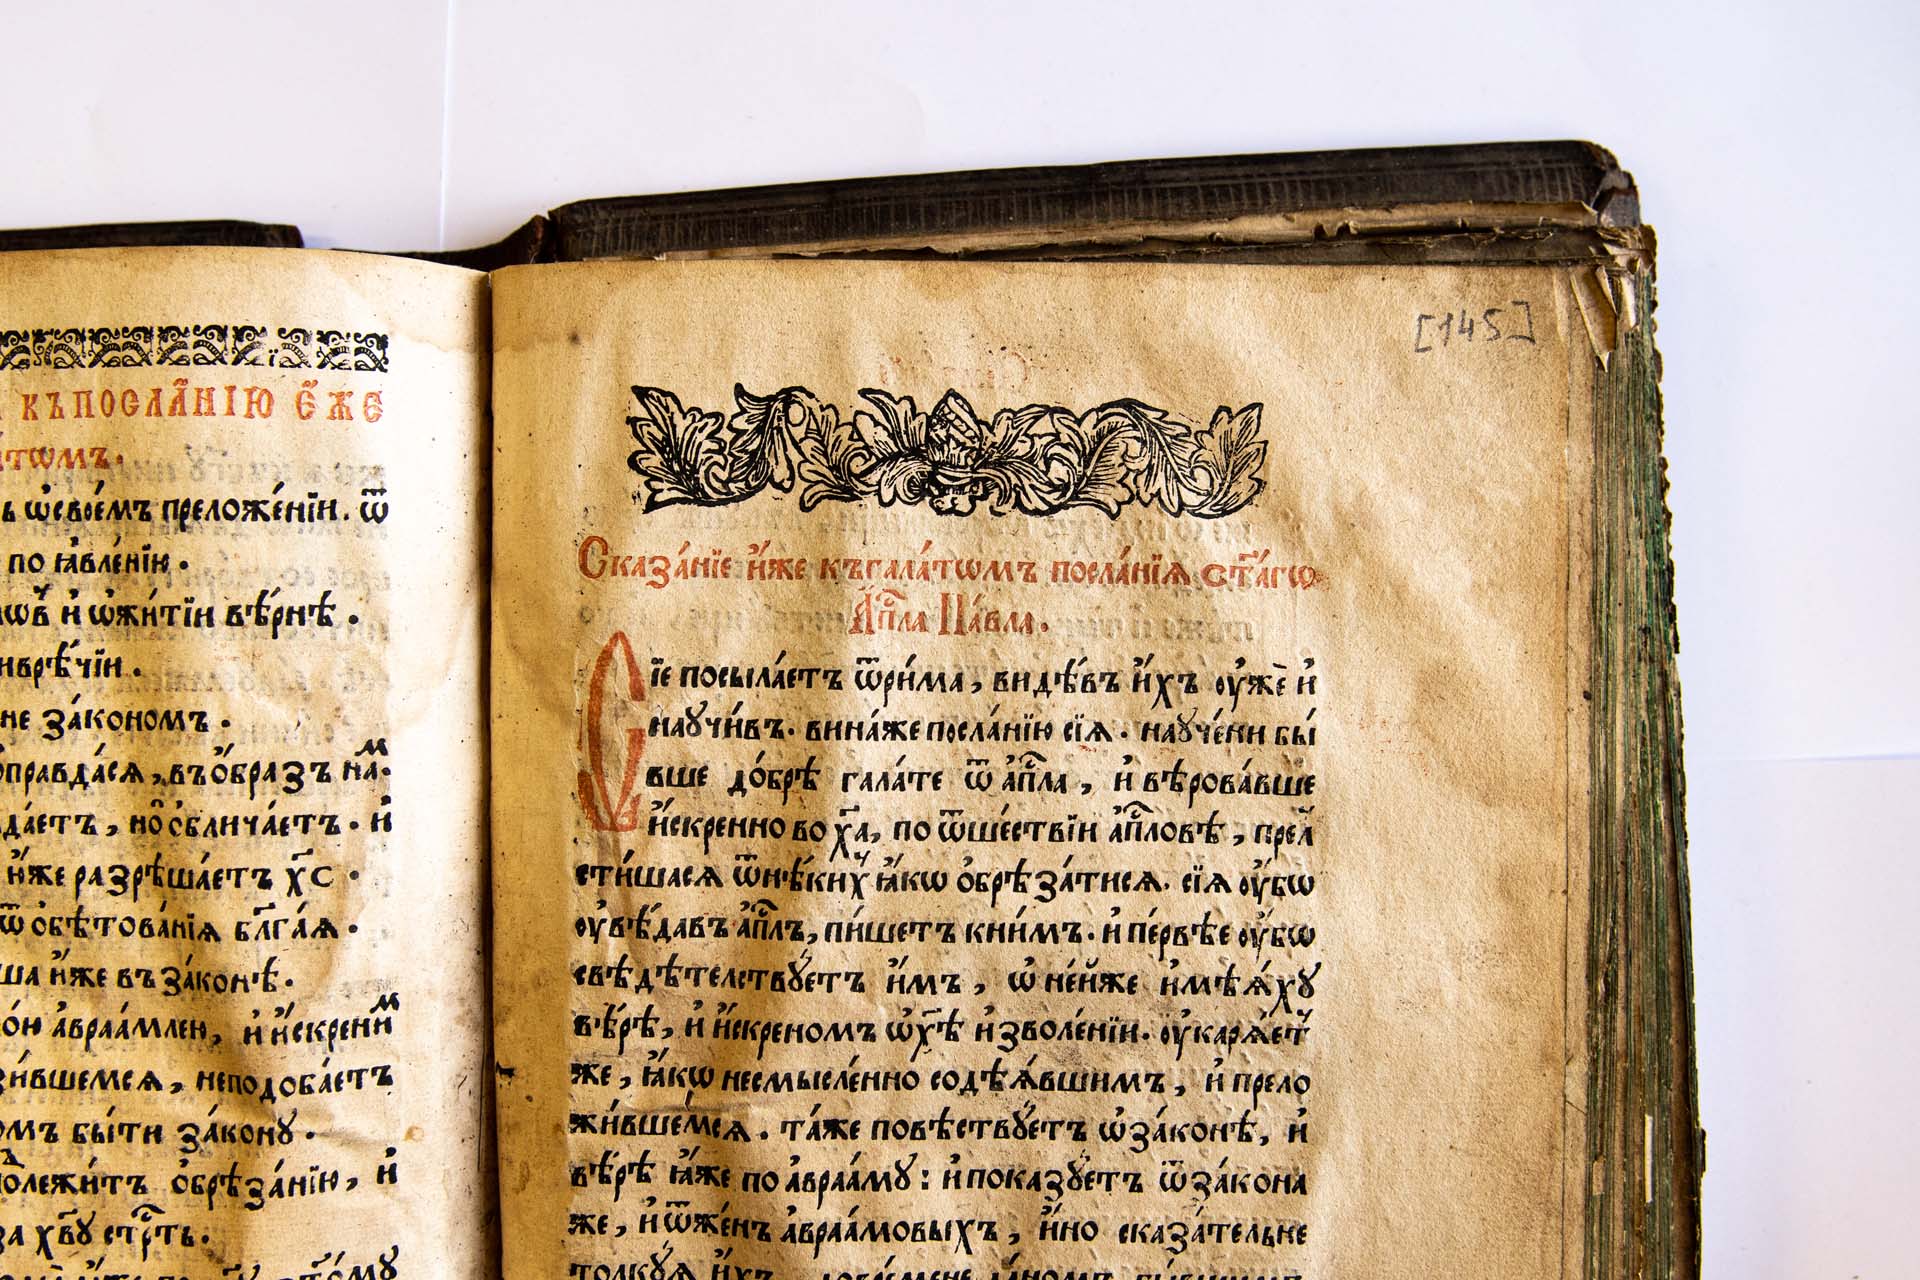 къпосла́нїю є҆́же
а́тѡмъ.
ѡ҆свое́мъ преложе́нїи. ѿ
по ꙗ҆вле́нїю.
и҆ ѡ҆жи́тїи вѣ́рнѣ.
не зако́номъ.
ѡправда́сѧ, въѡ҆́бразъ на́ⷨ.
да́етъ, но҆ ѡ҆блича́етъ. и҆
и҆́же разрѣша́етъ хс҃.
ѿ ѡ҆бѣтова́нїѧ бл҃га́ѧ.
ша и҆́же въ зако́нѣ.
о́ю а҆враа́млею, и҆ и҆́скренниⷨ
зи́вшемсѧ, неподоба́етъ
омъ бы́ти зако́нꙋ.
ѡ҆брѣ́занїю, и҆
за хв҃ꙋ стр҃ть.
[145]
Сказа́нїе и҆́же къгала́тѡмъ посла́нїѧ ст҃а́гѡ
А҆пⷭ҇ла Па́вла.
Сїе посыла́етъ ѿри́ма, видѣ́въ и҆́хъ ᲂу҆жѐ и҆
наꙋчи́въ. вина́же посла́нїю сїѧ. наꙋче́ни бы́
вше до́брѣ гала́те ѿ а҆пⷭ҇ла, и҆ вѣрова́вше
и҆́скренно во хр҃а, по ѿше́ствїи а҆пⷭ҇ловѣ, прел
сти́шасѧ ѿнѣ́кихъ ꙗ҆́кѡ ѡ҆брѣ́затисѧ. сїѧ ᲂу҆́бѡ
ᲂу҆вѣ́давъ а҆пⷭ҇лъ, пи́шетъ кни́мъ. и҆ пе́рвѣе ᲂу҆́бѡ
свѣдѣ́телствꙋетъ и҆́мъ, ѡ҆ не́йже и҆мѣѧ́хꙋ
вѣ́рѣ, и҆ и҆́скреномъ ѡ҆хр҃ѣ и҆зволе́нїи. ᲂу҆карѧ́етъ
же, ꙗ҆́кѡ несмы́сленно содѣѧ́вшимъ, и҆ прело
жи́вшемсѧ. та́же повѣ́ствꙋетъ ѡ҆зако́нѣ, и҆
вѣ́рѣ ꙗ҆́же по а҆враа́мꙋ: и҆ показꙋ́етъ ѿзако́на
же, и҆ ѿже́нъ а҆враа́мовыхъ, и҆́но сказа́телне
толкꙋ́ѧ и҆́хъ